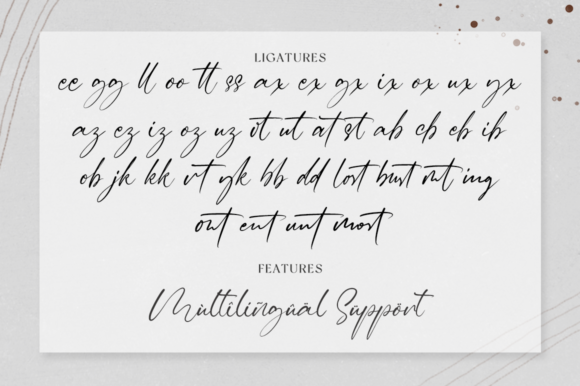 LIGATURES
ee gg ll oo tt ss ax ex gx ix ox ux yx
az ez iz oz uz ut at st ab cb eb ib
ob jk kk rt yk bb dd lost bust ing
ont ent unt most
FEATURES
Mültîlïñgüäl Süppört